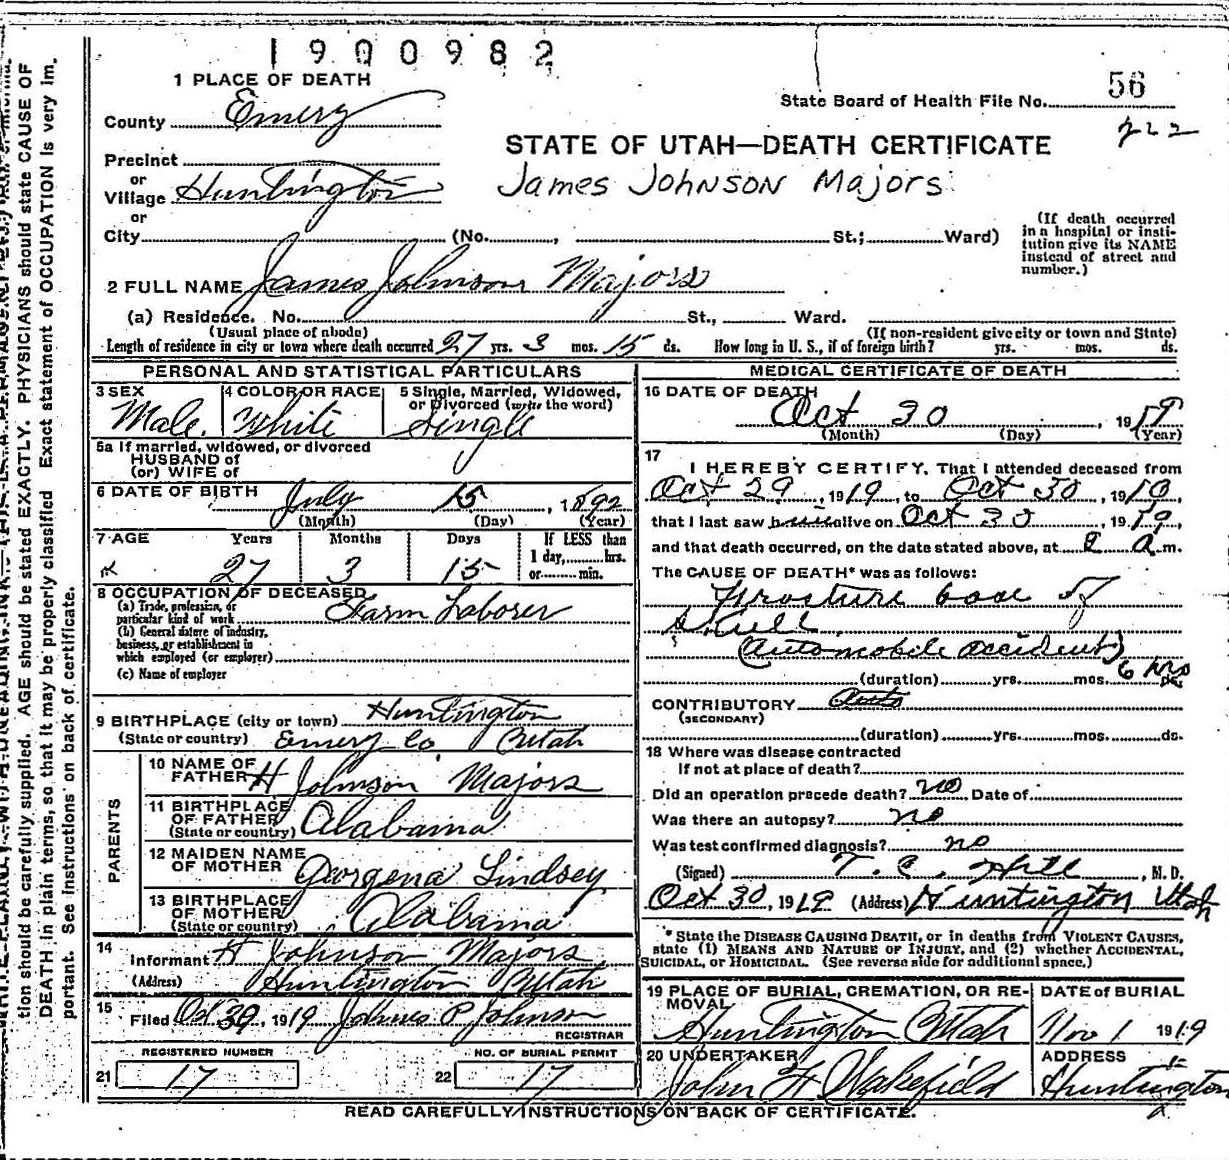 1900982
1 PLACE OF DEATH
State Board of Health File No. 56
222
County Emery
STATE OF UTAH—DEATH CERTIFICATE
Precinct
or
Village Huntington
James Johnson Majors
or
City (No. , St.; Ward)
(If death occurred
in a hospital or insti-
tution give its NAME
instead of street and
number.)
2 FULL NAME James Johnson Majors
(a) Residence. No. St., Ward.
(Usual place of abode) (If non-resident give city or town and State)
Length of residence in city or town where death occurred 27 yrs. 3 mos. 15 ds. How long in U. S., if of foreign birth? yrs. mos. ds.
PERSONAL AND STATISTICAL PARTICULARS
3 SEX
Male.
4 COLOR OR RACE
White
5 Single, Married, Widowed,
or Divorced (write the word)
Single
5a If married, widowed, or divorced
HUSBAND of
(or) WIFE of
6 DATE OF BIRTH July 15, 1892
(Month) (Day) (Year)
7 AGE Years Months Days
27 3 15
If LESS than
1 day, hrs.
or min.
8 OCCUPATION OF DECEASED
(a) Trade, profession, or
particular kind of work Farm Laborer
(b) General nature of industry,
business, or establishment in
which employed (or employer)
(c) Name of employer
9 BIRTHPLACE (city or town) Huntington
(State or country) Emery Co Utah
PARENTS
10 NAME OF
FATHER H Johnson Majors
11 BIRTHPLACE
OF FATHER
(State or country) Alabama
12 MAIDEN NAME
OF MOTHER Georgena Lindsey
13 BIRTHPLACE
OF MOTHER
(State or country) Alabama
14
Informant H Johnson Majors
(Address) Huntington Utah
15
Filed Oct 30, 1919 James P Johnson
REGISTRAR
REGISTERED NUMBER
21 17
NO. OF BURIAL PERMIT
22 17
MEDICAL CERTIFICATE OF DEATH
16 DATE OF DEATH
Oct 30, 1919
(Month) (Day) (Year)
17
I HEREBY CERTIFY, That I attended deceased from
Oct 29, 1919, to Oct 30, 1919
that I last saw him alive on Oct 30, 1919,
and that death occurred, on the date stated above, at 8 a m.
The CAUSE OF DEATH* was as follows:
Fracture base of
Skull
(Automobile accident)
(duration) yrs. mos. 6 hrs
CONTRIBUTORY Auto
(SECONDARY)
(duration) yrs. mos. ds.
18 Where was disease contracted
If not at place of death?
Did an operation precede death? no Date of
Was there an autopsy? no
Was test confirmed diagnosis? no
(Signed) T. C. Hill, M. D.
Oct 30, 1919 (Address) Huntington Utah
* State the DISEASE CAUSING DEATH, or in deaths from VIOLENT CAUSES,
state (1) MEANS AND NATURE OF INJURY, and (2) whether ACCIDENTAL,
SUICIDAL, or HOMICIDAL. (See reverse side for additional space.)
19 PLACE OF BURIAL, CREMATION, OR RE-
MOVAL
Huntington Utah
DATE of BURIAL
Nov 1 1919
20 UNDERTAKER
John F Wakefield
ADDRESS
Huntington
READ CAREFULLY INSTRUCTIONS ON BACK OF CERTIFICATE.
tion should be carefully supplied. AGE should be stated EXACTLY. PHYSICIANS should state CAUSE OF
DEATH in plain terms, so that it may be properly classified Exact statement of OCCUPATION is very im-
portant. See instructions on back of certificate.